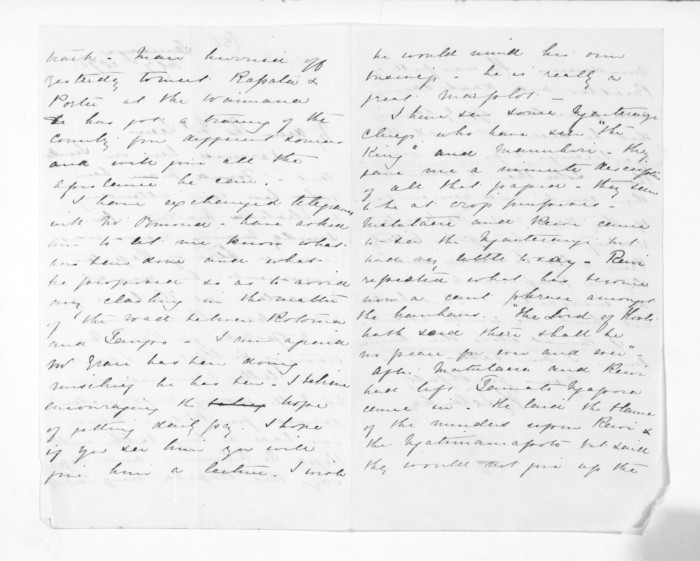 track - Mair hurried off
yesterday to meet Rapata &
Porter at the Waimana
he has got a tracing of the
country from different sources
and will give all the
assistance he can.
I have exchanged telegrams
with Mr Ormond - have asked
him to let me know what
has been done and what
he proposed so as to avoid
any clashing in the matter
of the road between Rotorua
and Taupo - I am afraid
Mr Grace has been doing
mischief he has been I believe
encouraging the hope
of getting daily pay I hope
if you see him you will
give him a lecture. I wish
he would mind his own
business - he is really a
great marplot -
I have seen some Ngaiterangi
chiefs who have seen "the
King" and Manuhiri - they
gave me a minute description
of all that passed - they seem
to be at cross purposes -
Matutaera and Rewi came
to see the Ngaiterangi but
had very little to say - Rewi
repeated what has become
now a cant phrase amongst
the hauhaus. "The Lord of Hosts
hath said there shall be
no peace for ever and ever" -
After Matutaera and Rewi
had left Tamati Ngapora
came in - He laid the blame
of the murders upon Rewi &
the Ngatimaniapoto but said
they would not give up the